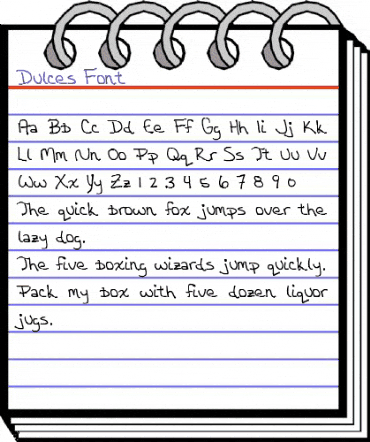 Dulces Font
Aa Bb Cc Dd Ee Ff Gg Hh Ii Jj Kk
Ll Mm Nn Oo Pp Qq Rr Ss Tt Uu Vv
Ww Xx Yy Zz 1 2 3 4 5 6 7 8 9 0
The quick brown fox jumps over the
lazy dog.
The five boxing wizards jump quickly.
Pack my box with five dozen liquor
jugs.